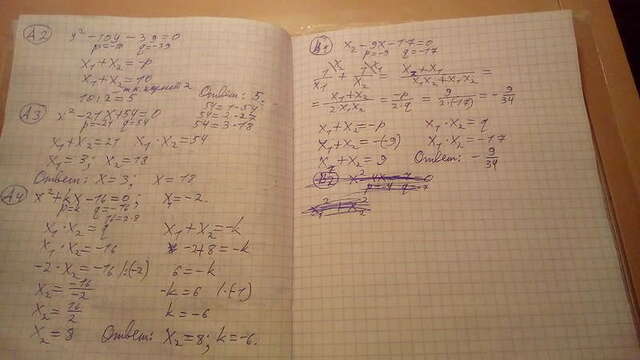 А2 y² - 10y - 39 = 0
p = -10 q = -39
x₁ + x₂ = -p
x₁ + x₂ = 10
10 : 2 = 5 Ответ: 5.
А3 x² - 21x + 54 = 0
p = -21 q = 54
54 = 1·54
54 = 2·27
54 = 3·18
x₁ + x₂ = 21 x₁ · x₂ = 54
x₁ = 3; x₂ = 18
Ответ: x = 3; x = 18
А4 x² + kx - 16 = 0; x₁ = -2.
p = k q = -16
x₁ · x₂ = q x₁ + x₂ = -k
x₁ · x₂ = -16 -2 + 8 = -k
-2 · x₂ = -16 |:(-2) 6 = -k
x₂ = -16/-2 -k = 6 |·(-1)
x₂ = 16/2 k = -6
x₂ = 8 Ответ: x₂ = 8; k = -6.
В1 x₂ - 9x - 17 = 0
p = -9 q = -17
1/x₁ + 1/x₂ = x₂ + x₁/x₁x₂ + x₁x₂ =
= x₁ + x₂/2x₁x₂ = -p/2·q = 9/2·(-17) = -9/34
x₁ + x₂ = -p x₁ · x₂ = q
x₁ + x₂ = -(-9) x₁ · x₂ = -17
x₁ + x₂ = 9 Ответ: -9/34